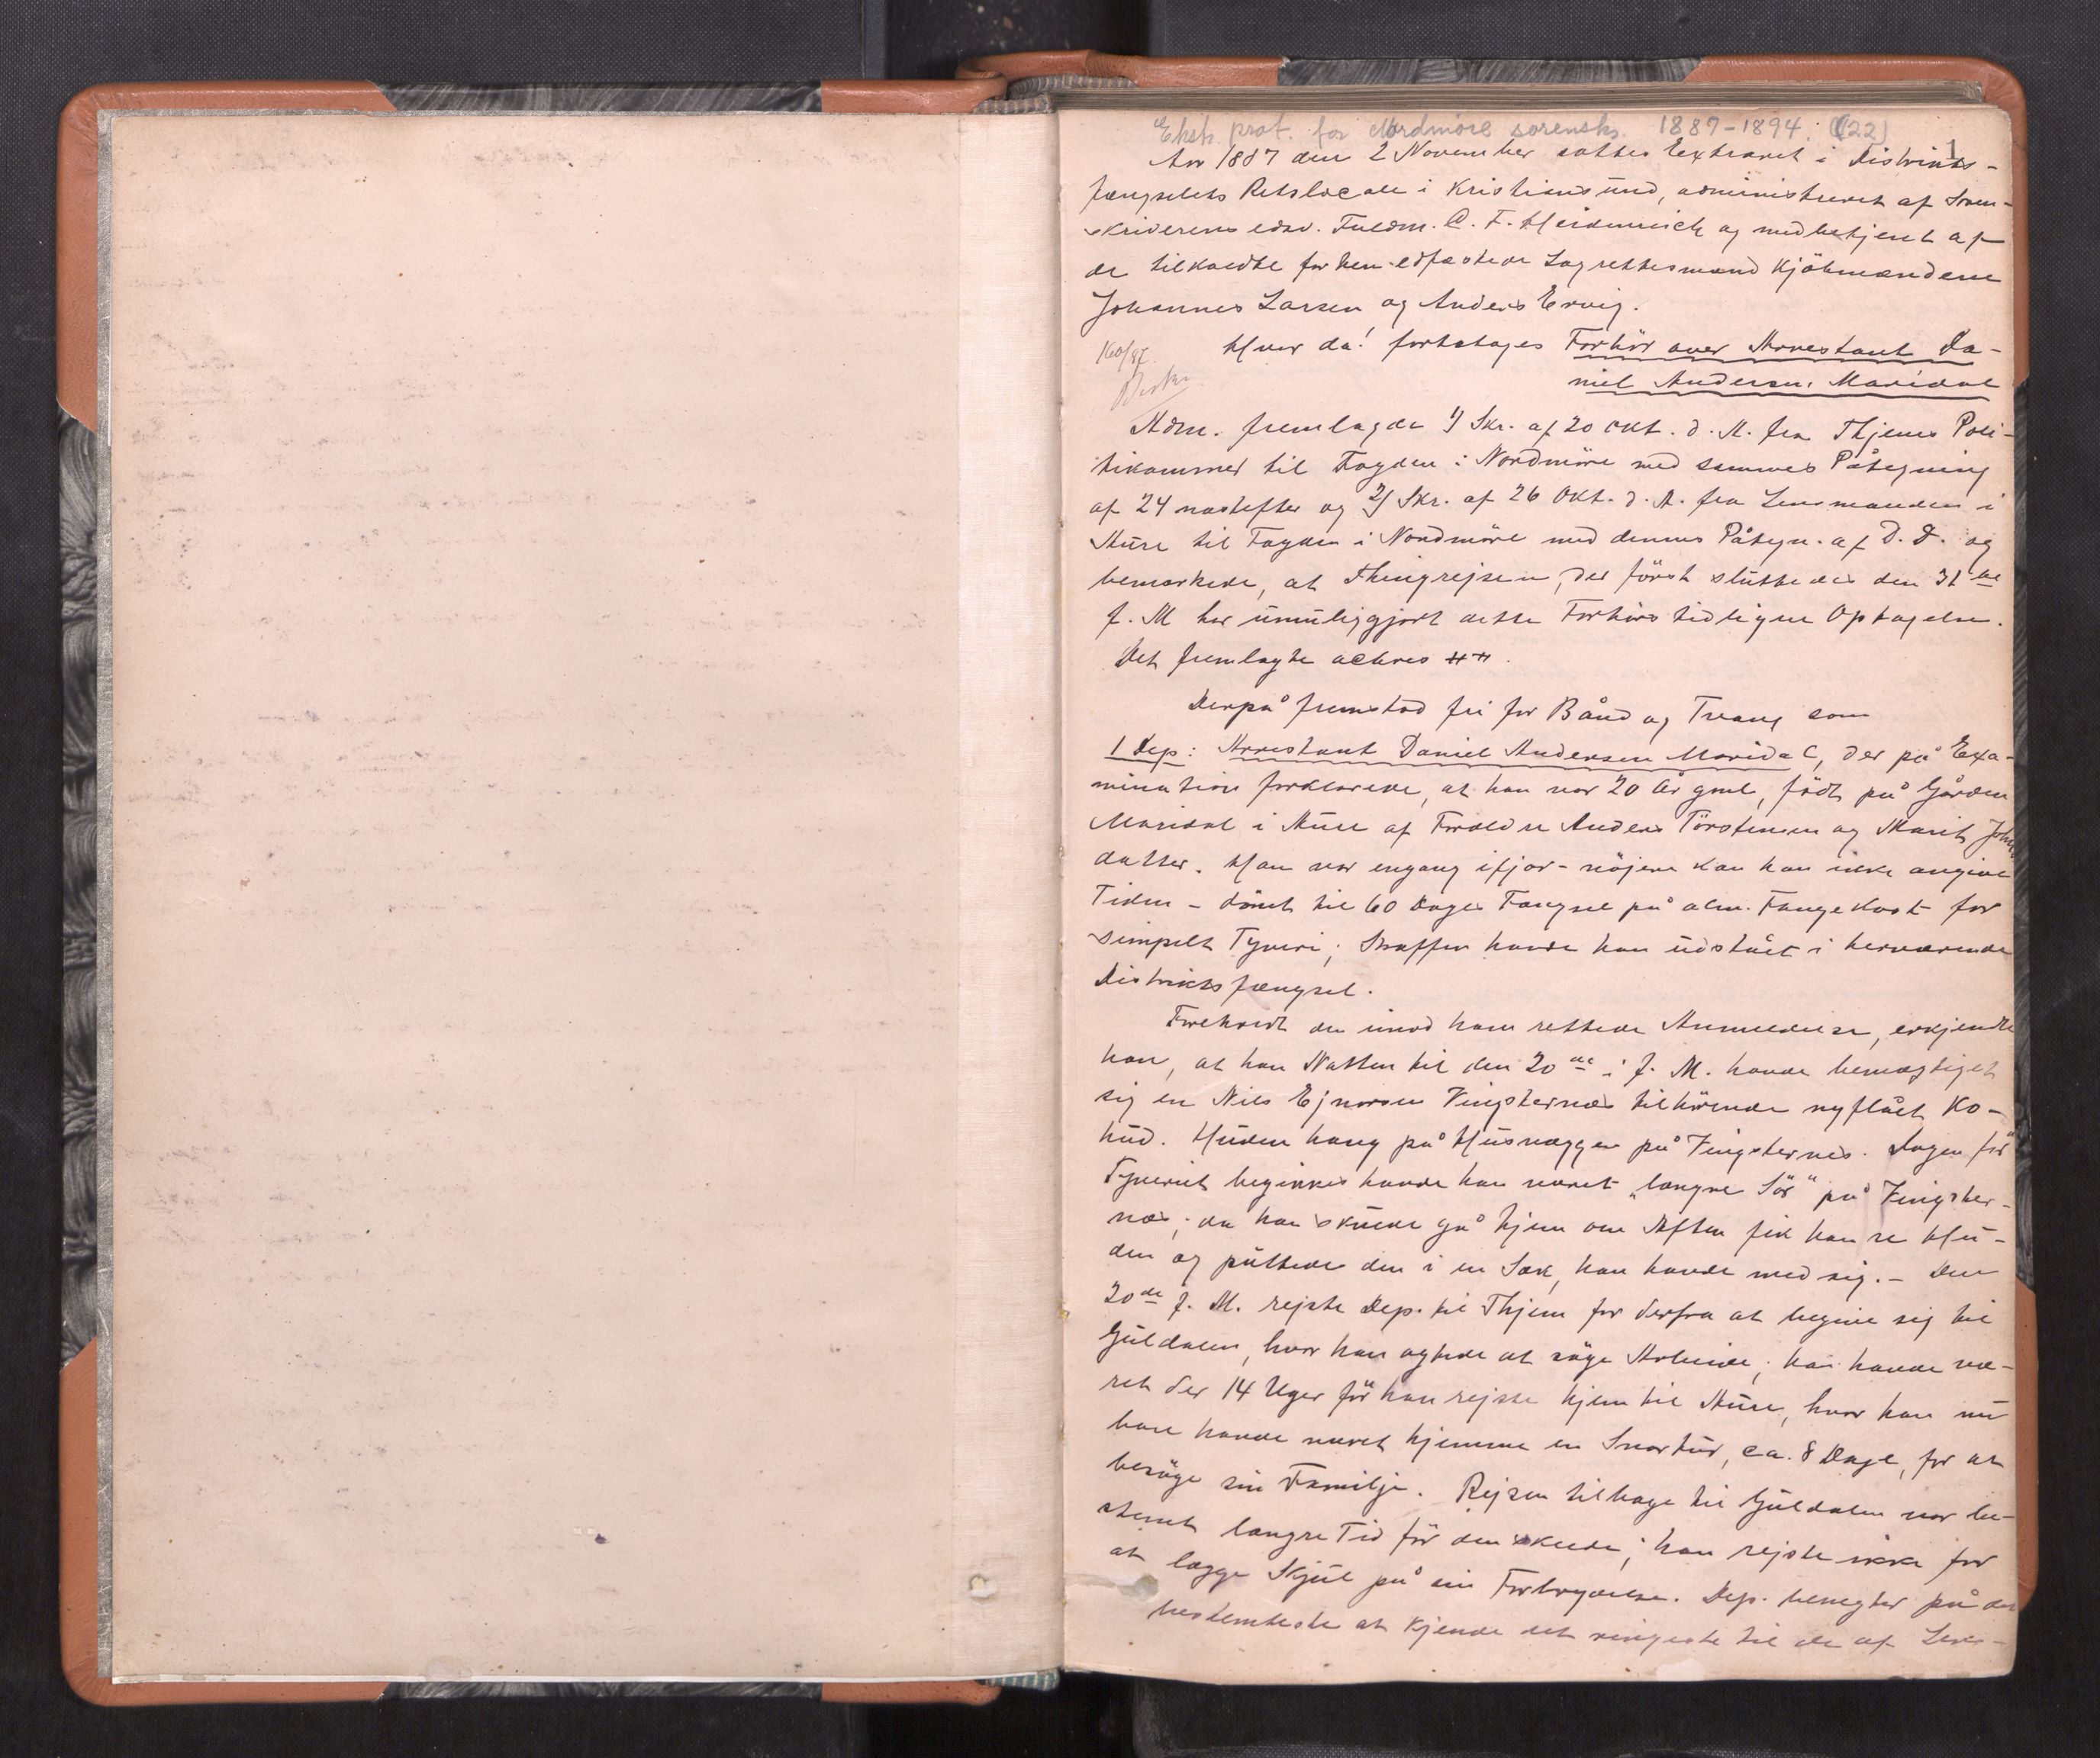 Ekstr. prot. for Nordmöre sorenskr. 1887-1894. (22)
1
Aar 1887 den 2 November sattes Extraret i Distrikts-
fængselets Retslocale i Kristiansund, administreret af Soren-
skriverens edsv. Fuldm. C. F. Heidenreich og medbetjent af
de tilkaldte forhen edfæstede Lagrettesmænd Kjöbmændene
Johannes Larsen og Anders Ervig.
160/87 Hvor da! foretages Forhör over Arrestant Da-
niel Andersen Maridal
Adm. fremlagde 1) Skr. af 20 Okt. d. A. fra Thjems Poli-
tikammer til Fogden i Nordmöre med sammes Påtegning
af 24 næstefter og 2) Skr. af 26 Okt. d. A. fra Lensmanden i
Aure til Fogden i Nordmöre med dennes Påtegn. af D. D. og
bemærkede, at Thingrejsen, der först sluttedes den 31te
f. M har umuliggjort dette Forhörs tidligere Optagelse.
Det fremlagte acteres
Derpå fremstod fri for Bånd og Tvang som
1 Dep: Arrestant Daniel Andersen Maridal, der på Exa-
mination forklarede, at han var 20 År gml, födt på Gården
Maridal i Aure af Forældre Anders Törstensen og Marit Johns
datter. Han var engang ifjor - nöjere kan han ikke angive
Tiden - dömt til 60 Dages Fængsel på alm. Fangekost for
simpelt Tyveri; Straffen havde han udstået i herværende
Distriktsfængsel.
Foreholdt den imod ham rettede Anmeldelse, erkjendte
han, at han Natten til den 20de i f. M. havde bemægtiget
sig en Nils Ejnarsen Vingsternæs tilhörende nyflået Ko-
hud. Huden hang på Husvæggen på Vingsternæs. Dagen för
Tyveriet begikkes havde han været "længre Sör" på Vingster-
næs; da han skulde gå hjem om Aften fik han se Hu-
den og puttede den i en Sæk, han havde med sig. - Den
20de f. M. rejste Dep. til Thjem for derfra at begive sig til
Guldalen, hvor han agtede at söge Arbeide; han havde væ-
ret der 14 Uger för han rejste hjem til Aure, hvor han nu
bare havde været hjemme en Snartur, ca. 8 Dage, for at
besöge sin Familje. Rejsen tilbage til Guldalen var be-
stemt længre Tid för den skede; han rejste ikke for
at lægge Skjul på sin Forbrydelse. Dep. benegter på det
bestemteste at kjende det ringeste til de af Lens-